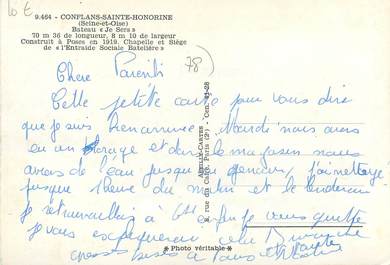 Lot
9.464 - CONFLANS-SAINTE-HONORINE
(Seine-et-Oise)
Bateau « Je Sers »
70 m 36 de longueur, 8 m 10 de largeur
Construit à Poses en 1919. Chapelle et Siège
de « l'Entraide Sociale Batelière »
78)
Chere Parents
Cette petite carte pour vous dire
que je suis bien arrivée. Mardi nous avons
eu un orage et dans le magasin nous
avions de l'eau jusqu'au genoux, j'ai nettoyé
jusque 1 heure du matin et le lendemain
je retravaillais à 6H enfin je vous quitte
je vous expliquerai cela Dimanche
grosses bises à tous
ABEILLE-CARTES
8, rue du Caire, Paris (2e) - Cen. 43-28
* Photo véritable *